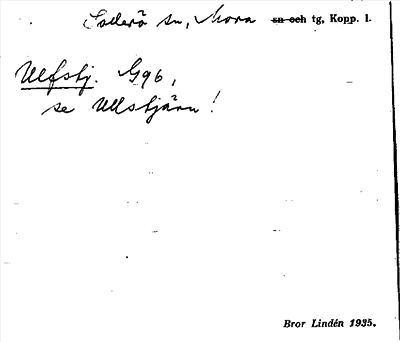 Sollerö sn, Mora sn och tg, Kopp. l.
Ulfsbj. G96,
se Ullsbjärn!
Bror Lindén 1935.